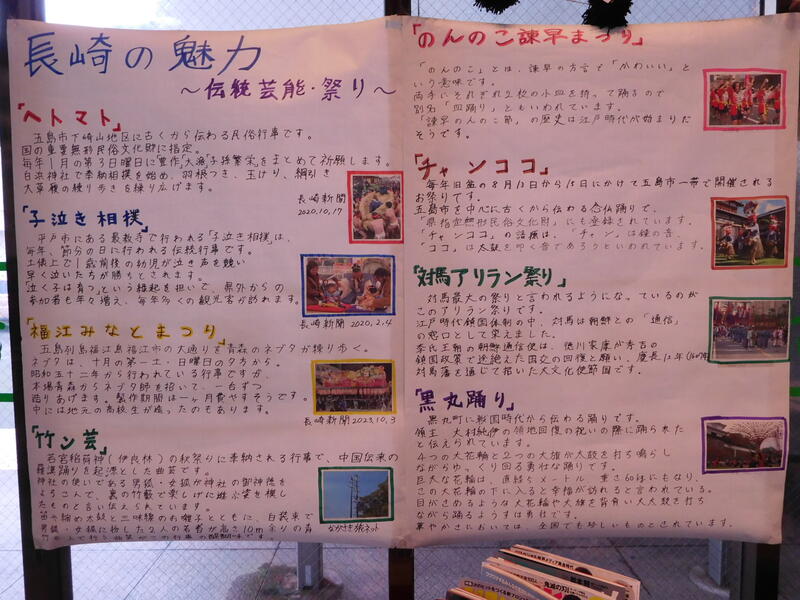 長崎の魅力
～伝統芸能・祭り～
「ヘトマト」
五島市下崎山地区に古くから伝わる民俗行事です。
国の重要無形民俗文化財に指定。
毎年1月の第3日曜日に豊作、大漁、子孫繁栄をまとめて祈願します。
白浜神社で奉納相撲を始め、羽根つき、玉けり、綱引き
大草履の練り歩きを繰り広げます。
長崎新聞
2020.10.17
「子泣き相撲」
平戸市にある最教寺で行われる「子泣き相撲」は、
毎年、節分の日に行われる伝統行事です。
土俵上で1歳前後の幼児が泣き声を競い
早く泣いた方が勝ちとされます。
「泣く子は育つ」という縁起を担いで、県外からの
参加者も年々増え、毎年多くの観光客が訪れます。
長崎新聞 2020.2.4
「福江みなとまつり」
五島列島福江島福江市の大通りを青森のネブタが練り歩く。
ネブタは、十月の第一土・日曜日の夕方から。
昭和五十三年から行われている行事ですが、
本場青森からネブタ師を招いて、一台ずつ
造りあげます。製作期間は一ヶ月費やすそうです。
中には地元の高校生が造ったのもあります。
長崎新聞2023.10.3
「竹ン芸」
若宮稲荷神(伊良林)の秋祭りに奉納される行事で、中国伝来の
羅漢踊りを起源とした曲芸です。
神社の使いである男狐・女狐が神社の御神徳を
よろこんで、裏の竹藪で楽しげに遊ぶ姿を模し
たものと言い伝えられています。
笛や締め太鼓と三味線のお囃子とともに、白装束で
男狐・女狐に扮した2人の若者が高さ10m余りの青
ながさき旅ネット
「のんのこ諫早まつり」
「のんのこ」とは、諫早の方言で「かわいい」と
いう意味です。
両手にそれぞれ2枚の小皿を持って踊るので
別名「皿踊り」ともいわれています。
「諫早のんのこ節」の歴史は江戸時代から始まりだ
そうです。
「チャンココ」
毎年旧盆の8月13日から15日にかけて五島市一帯で開催される
お祭りです。
五島市を中心に古くから伝わる念仏踊りで、
「県指定無形民俗文化財」にも登録されています。
「チャンココ」の語源は、「チャン」は鐘の音、
「ココ」は太鼓を叩く音であろうといわれています。
「対馬アリラン祭り」
対馬最大の祭りと言われるようになっているのが
このアリラン祭りです。
江戸時代鎖国体制の中、対馬は朝鮮との「通信」
の窓口として栄えました。
李氏王朝の朝鮮通信使は、徳川家康が秀吉の
鎖国政策で途絶えた国交の回復と願い、慶長12年(1607年)
対馬藩を通じて招いた大文化使節団です。
「黒丸踊り」
黒丸町に戦国時代から伝わる踊りです。
領主、大村純伊の領地回復の祝いの際に踊られた
と伝えられています。
4つの大花輪と2つの大旗が太鼓を打ち鳴らし
ながらゆっくり回る勇壮な踊りです。
巨大な花輪は、直経5メートル 重さ60kgにもなり、
この大花輪の下に入ると幸福が訪れると言われている。
目がさめるような大花輪や大旗を背負い大太鼓を打ち
ながら踊るようすは勇壮です。
華やかさにおいては、全国でも珍しいものとされています。